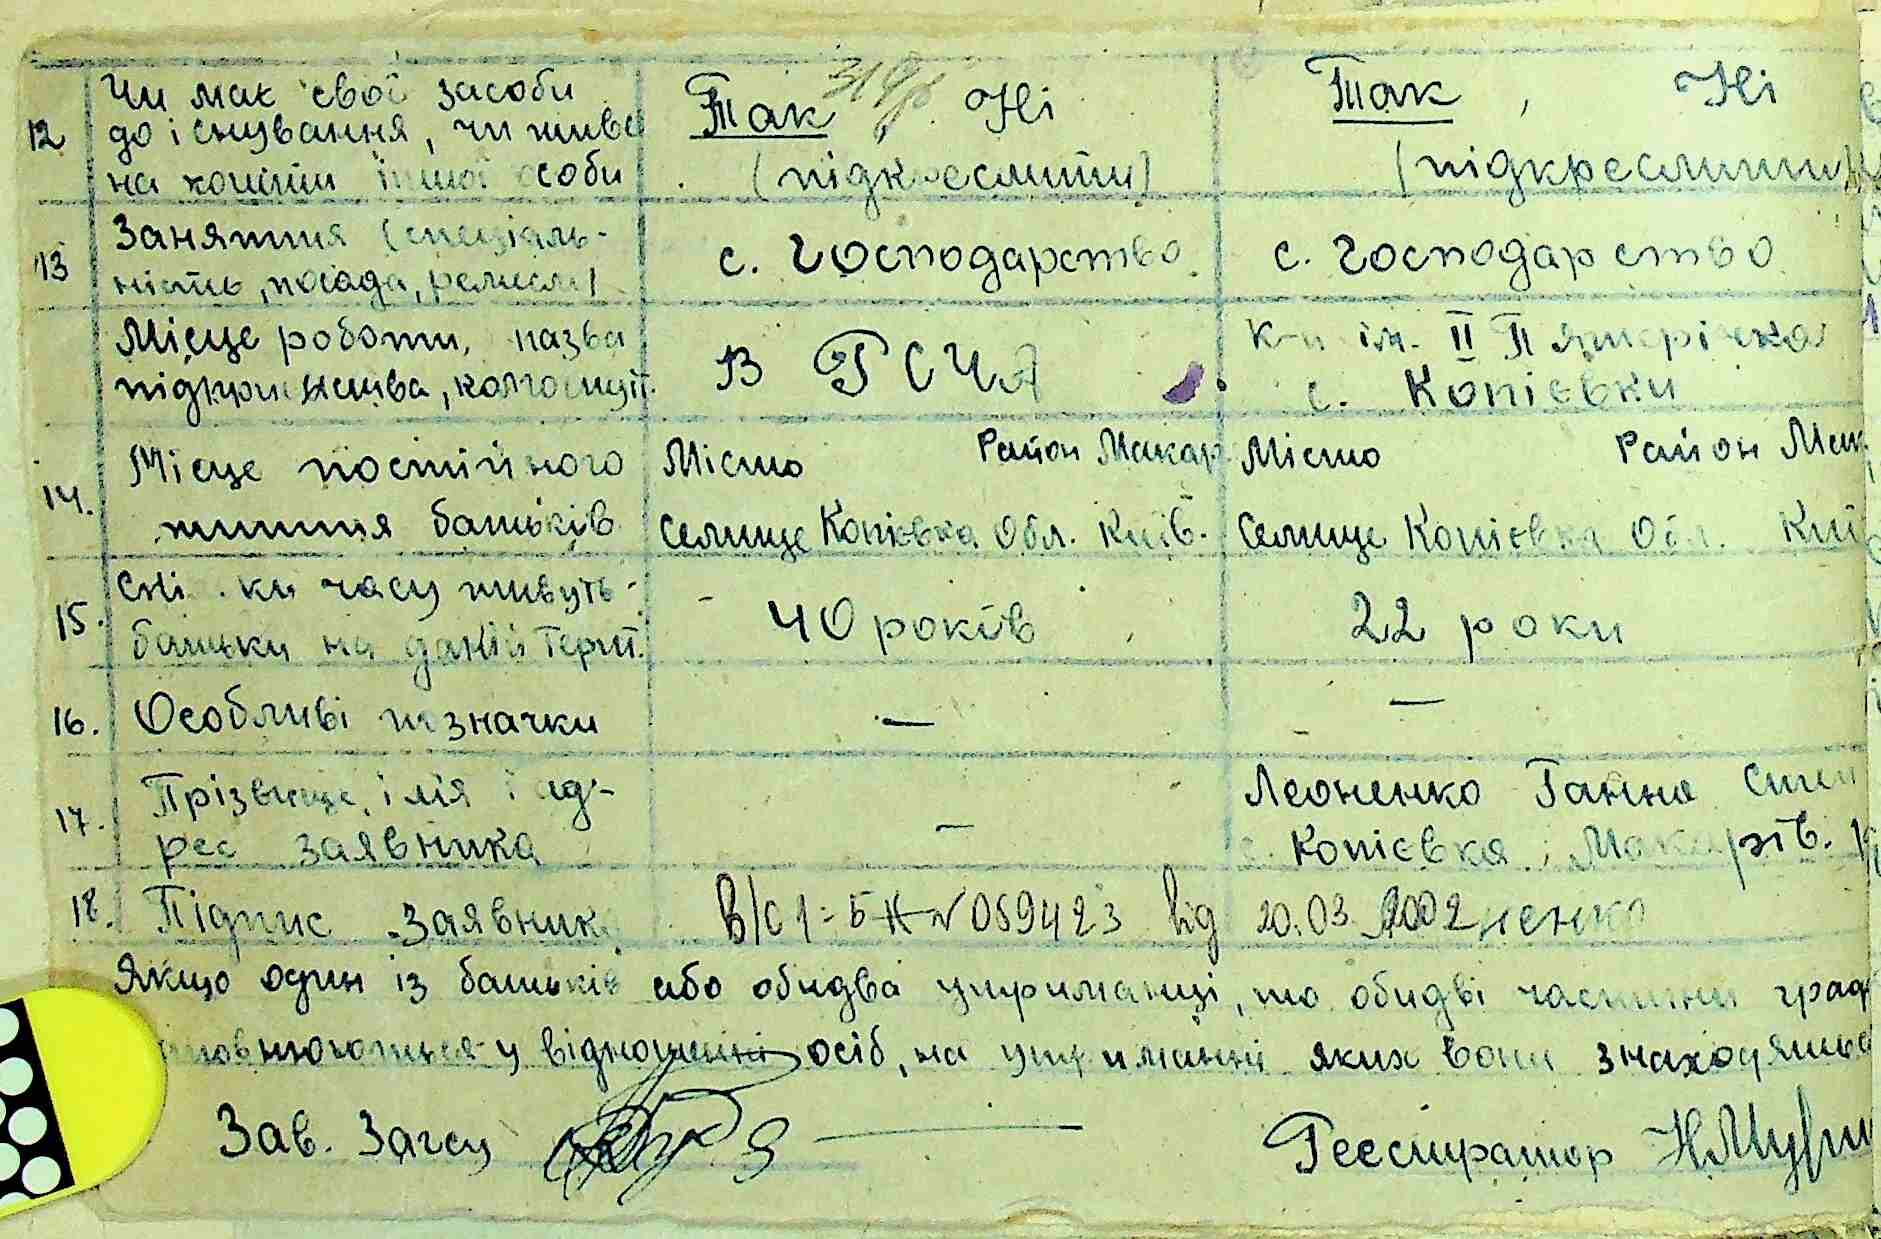 12 Чи має свої засоби до існування, чи живе на кошти іншої особи
Так Ні (підкреслити)
Так , Ні (підкреслити)
13 Заняття (спеціальність, посада, ремесло)
с. Господарство
с. Господарство
Місце роботи, назва підприємства, колгоспу
В РСЧА
к-п ім. II Пятирічка с. Копієвки
14. Місце постійного життя батьків
Місто Район Макар
Селище Копієвка Обл. Київ.
Місто Район Мак
Селище Копієвка Обл. Киї
15. Скі ки часу живуть батьки на даній терит.
40 років
22 роки
16. Особливі позначки
—
—
17. Прізвище, імя і адрес заявника
—
Леоненко Ганна Степ
с. Копієвка, Макарів.
18. Підпис заявника
від 20.03.2002 ненко
Якщо один із батьків або обидва утриманці, то обидві частини граф
у відношенні осіб, на утриманні яких вони знаходяться
Зав. Загсу
Реєстратор